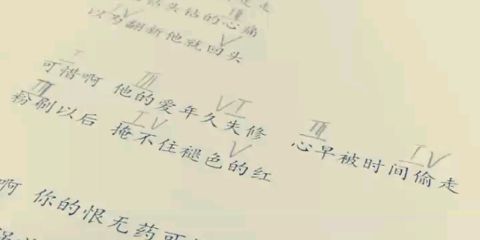 走
III
头钻的心痛
IV V
以为翻新他就回头
I III VI III IV
可惜啊 他的爱年久失修 心早被时间偷走
III IV V
粉刷以后 掩不住褪色的红
啊 你的恨无药可